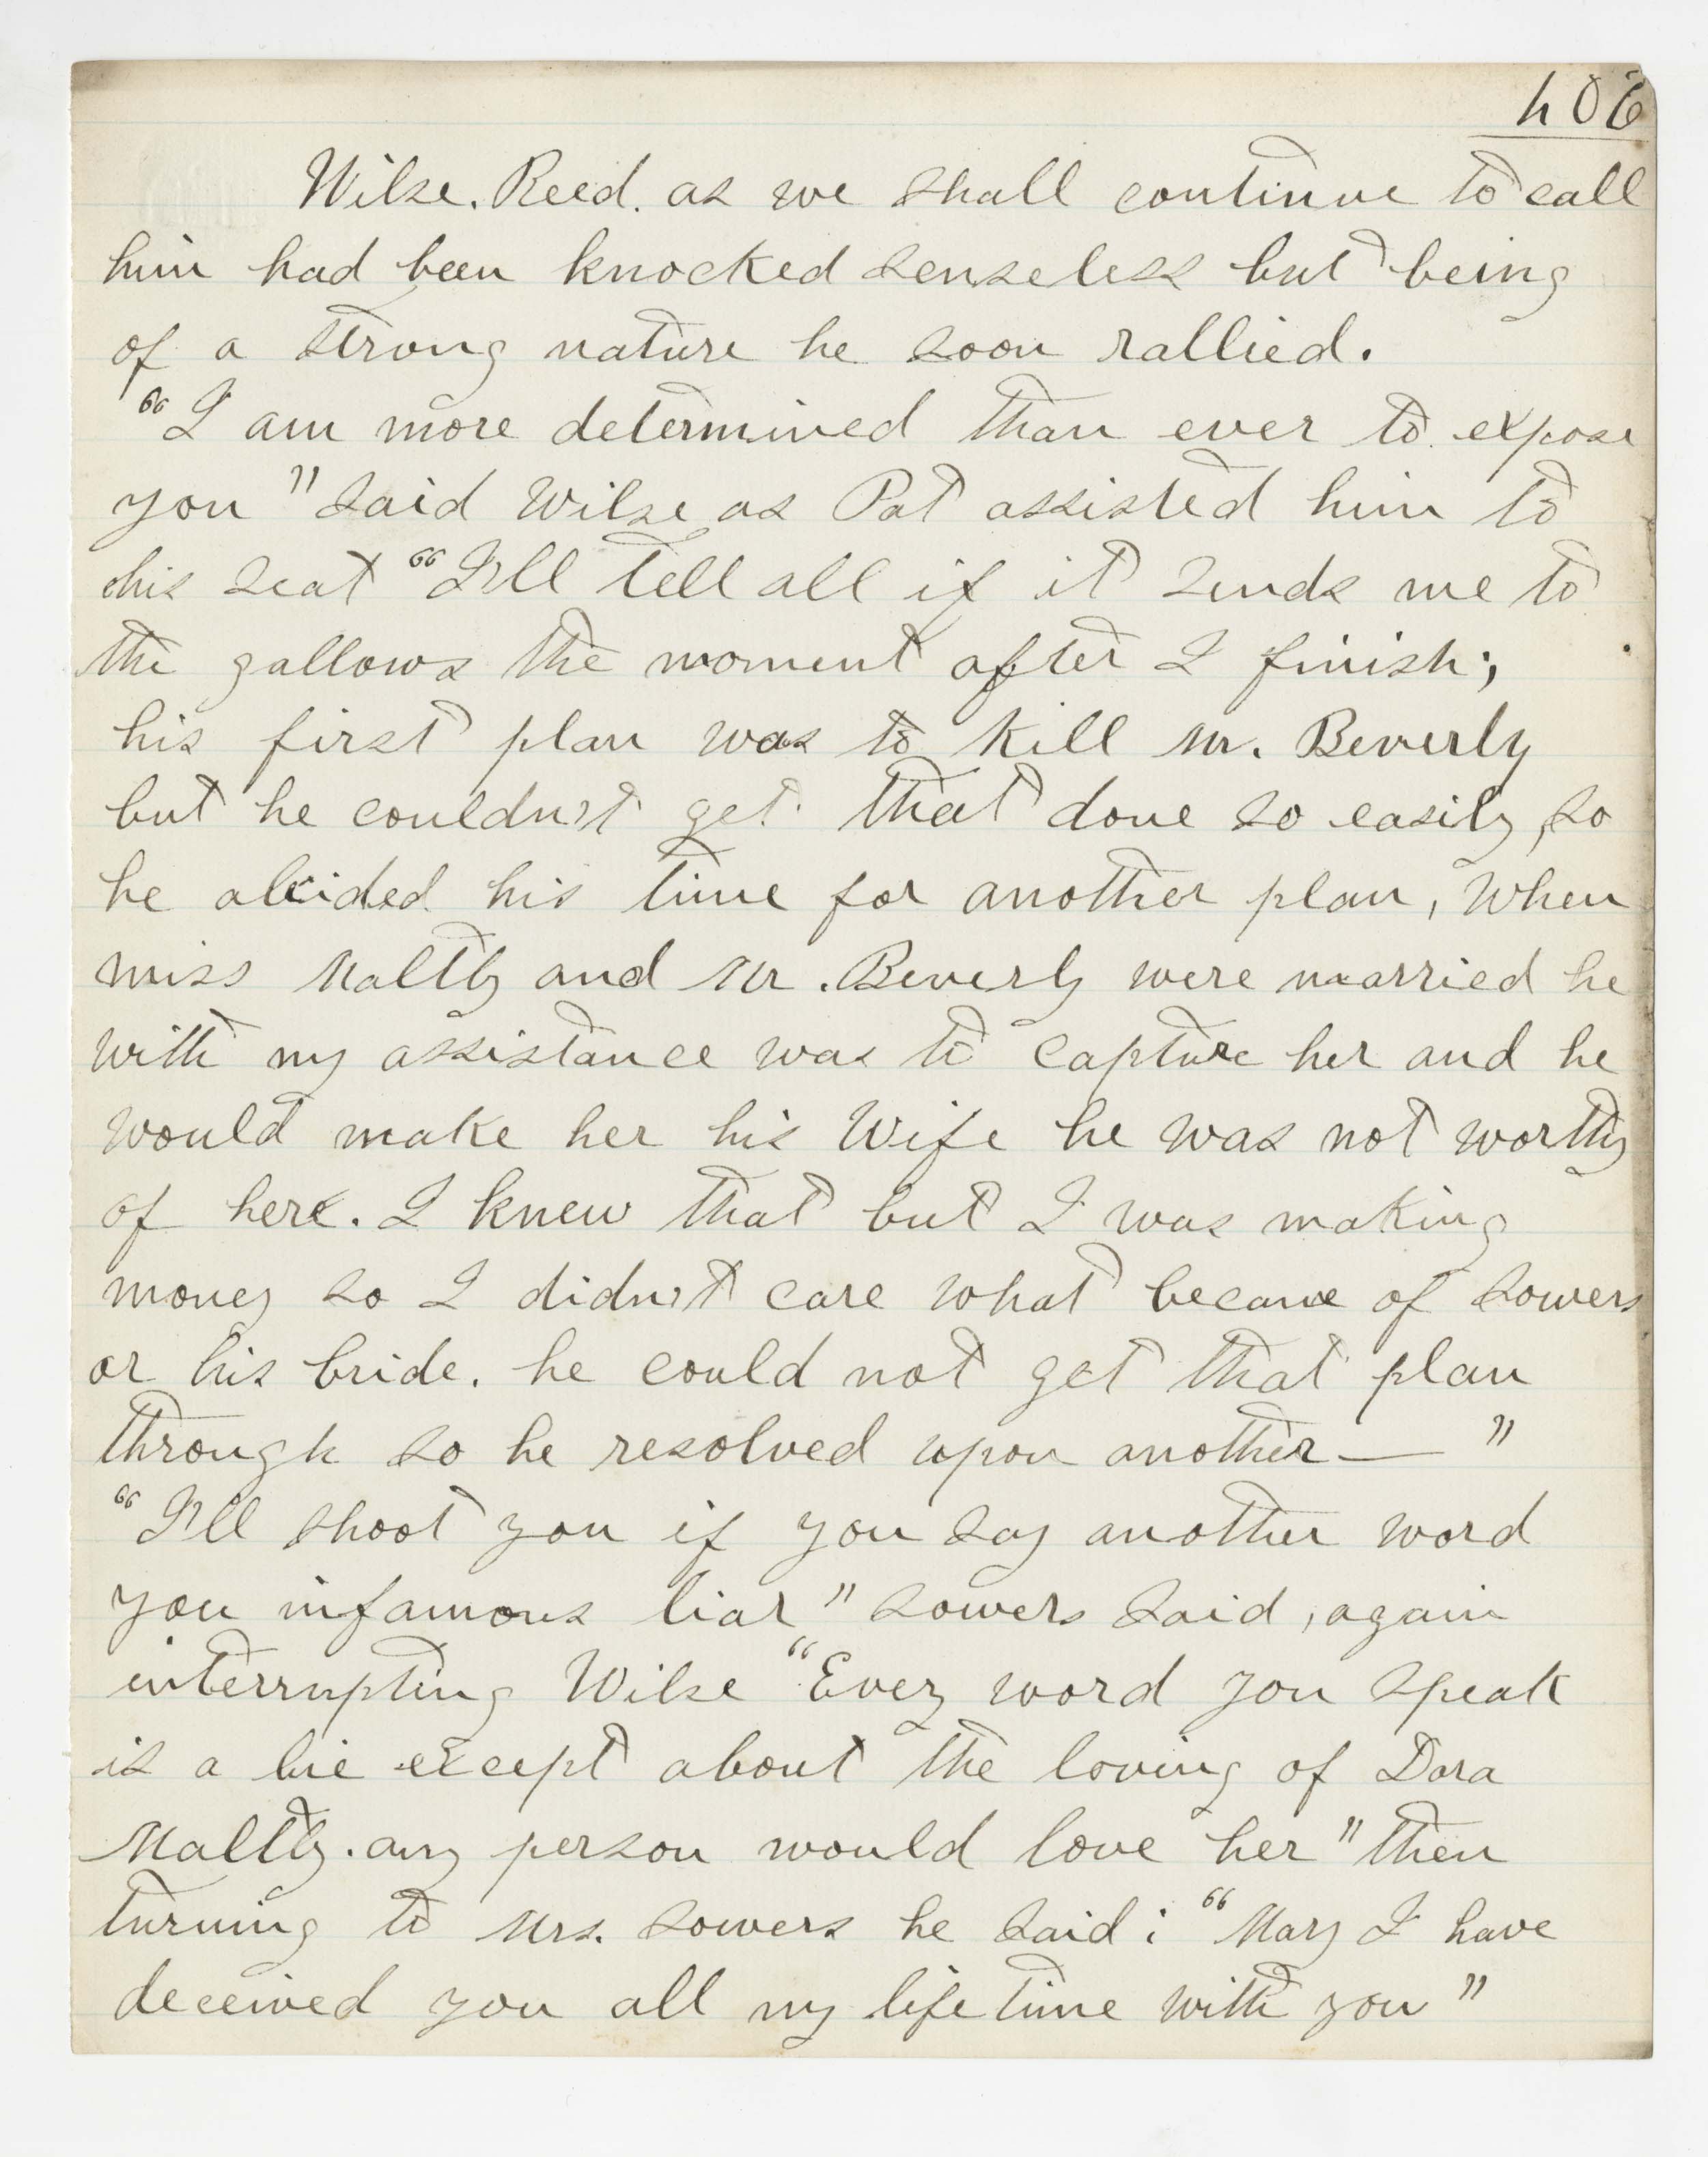 406
Wilse. Reed. as we shall continue to call
him had been knocked senseless but being
of a strong nature he soon rallied.
"I am more determined than ever to expose
you" said Wilse as Pat assisted him to
his seat "I'll tell all if it sends me to
the gallows the moment after I finish;
his first plan was to kill Mr. Beverly
but he couldn't get that done so easily, so
he abided his time for another plan, When
miss Maltby and Mr. Beverly were married he
with my assistance was to capture her and he
would make her his Wife he was not worthy
of here. I knew that but I was making
money so I didn't care what became of Sowers
or his bride. he could not get that plan
through so he resolved upon another — "
"I'll shoot you if you say another word
you infamous liar" Sowers said, again
interrupting Wilse "Evey word you speak
is a lie except about the loving of Dora
Maltby. any person would love her" then
turning to Mrs. Sowers he said: "Mary I have
deceived you all my life time with you"